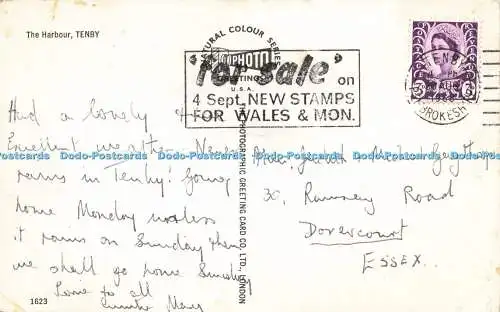 The Harbour, TENBY
NATURAL COLOUR SERIES
"for sale" on
GREETINGS
U.S.A.
4 Sept. NEW STAMPS
FOR WALES & MON.
TENBY
AUG
PEMBROKESH
3D
Had a lovely
Excellent weather. Never
rains in Tenby! Going
home Monday unless
it rains on Sunday then
we shall go home Sunday
Love to all
Auntie Mary
PHOTOGRAPHIC GREETING CARD CO., LTD., LONDON
30, Ramsey Road
Dovercourt
ESSEX.
1623
Dodo-Postcards Dodo-Postcards Dodo-Postcards Dodo-Postcards Dodo-Postcards